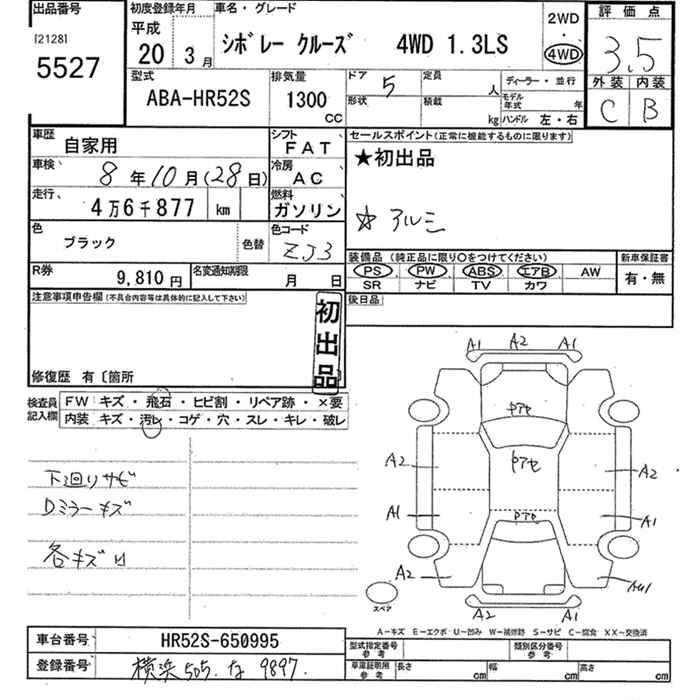 出品番号
[2128]
5527
初度登録年月
平成
20 3月
車名・グレード
シボレー クルーズ 4WD 1.3LS
2WD
4WD
評価点
3.5
外装 内装
C B
型式
ABA-HR52S
排気量
1300
CC
ドア
5
定員
人
ディーラー・並行
形状
積載
kg
モデル年式 年
ハンドル 左・右
車歴
自家用
シフト
FAT
車検
8年10月(28日)
冷房
AC
走行
4万6千877 km
燃料
ガソリン
色
ブラック
色替
色コード
ZJ3
R券
9,810円
名変通知期限
月 日
セールスポイント(正常に機能するものに限ります)
★初出品
☆ アルミ
装備品(純正品に限り○をつけてください)
PS PW ABS エアB AW
SR ナビ TV カワ
新車保証書
有・無
後日品
注意事項申告欄(不具合内容等は具体的に記入して下さい)
初出品
修復歴 有〔箇所
検査員記入欄
FW キズ・飛石・ヒビ割・リペア跡・×要
内装 キズ・汚レ・コゲ・穴・スレ・キレ・破レ
下回りサビ
Dミラーキズ
各キズU
A1 A2 A1
A2 A2
A1 A1
A2
A2 A1
スペア
A-キズ E-エクボ U-凹み W-補修跡 S-サビ C-腐食 XX-交換済
車台番号
HR52S-650995
登録番号
横浜 505 な 9897
型式指定番号
参考
類別区分番号
参考
車庫証明用
参考
長さ cm 幅 cm 高さ cm